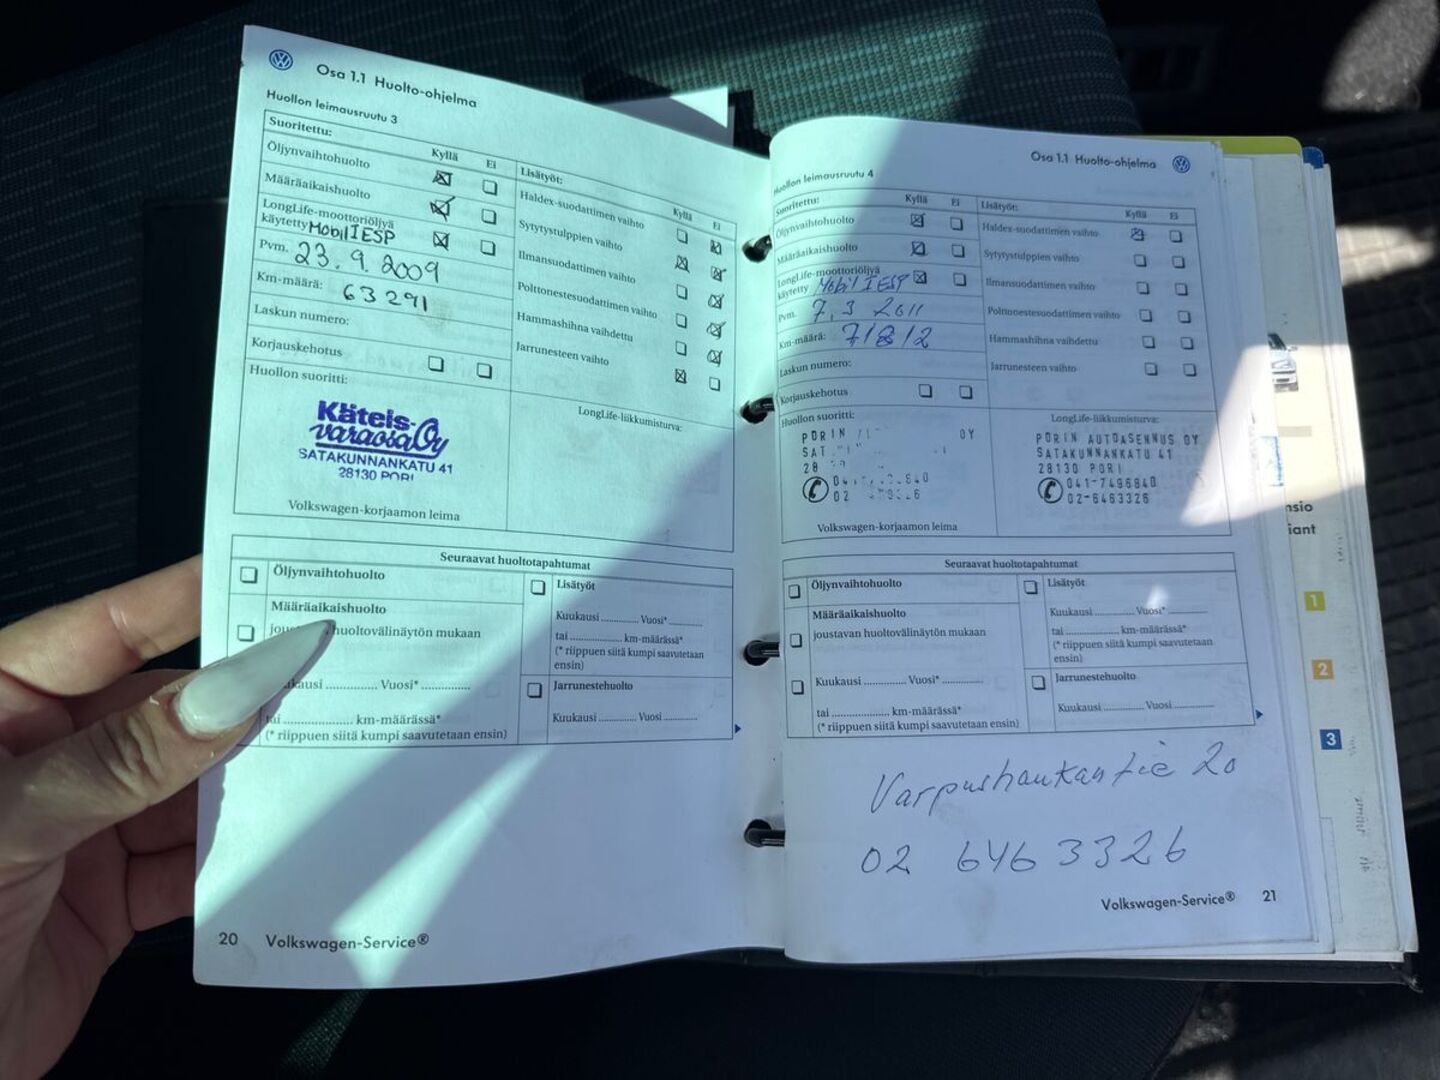 Osa 1.1 Huolto-ohjelma
Huollon leimausruutu 3
Suoritettu:
Kyllä Ei
Öljynvaihtohuolto
Määräaikaishuolto
LongLife-moottoriöljyä
käytetty Mobil 1 ESP
Pvm. 23.9.2009
Km-määrä: 63291
Laskun numero:
Korjauskehotus
Huollon suoritti:
Käteis-
varaosa Oy
SATAKUNNANKATU 41
28130 PORI
Volkswagen-korjaamon leima
Lisätyöt:
Kyllä Ei
Haldex-suodattimen vaihto
Sytytystulppien vaihto
Ilmansuodattimen vaihto
Polttonestesuodattimen vaihto
Hammashihna vaihdettu
Jarrunesteen vaihto
LongLife-liikkumisturva:
Seuraavat huoltotapahtumat
Öljynvaihtohuolto
Määräaikaishuolto
huoltovälinäytön mukaan
Vuosi*
tai km-määrässä*
(* riippuen siitä kumpi saavutetaan ensin)
Lisätyöt
Kuukausi Vuosi*
tai km-määrässä*
(* riippuen siitä kumpi saavutetaan
ensin)
Jarrunestehuolto
Kuukausi Vuosi
20 Volkswagen-Service®
Osa 1.1 Huolto-ohjelma
Huollon leimausruutu 4
Suoritettu:
Kyllä Ei
Öljynvaihtohuolto
Määräaikaishuolto
LongLife-moottoriöljyä
käytetty Mobil 1 ESP
Pvm. 7.3 2011
Km-määrä: 71812
Laskun numero:
Korjauskehotus
Huollon suoritti:
PORIN OY
Volkswagen-korjaamon leima
Lisätyöt:
Kyllä Ei
Haldex-suodattimen vaihto
Sytytystulppien vaihto
Ilmansuodattimen vaihto
Polttonestesuodattimen vaihto
Hammashihna vaihdettu
Jarrunesteen vaihto
LongLife-liikkumisturva:
PORIN AUTOASENNUS OY
SATAKUNNANKATU 41
28130 PORI
041-7496840
02-6463326
Seuraavat huoltotapahtumat
Öljynvaihtohuolto
Määräaikaishuolto
joustavan huoltovälinäytön mukaan
Kuukausi Vuosi*
tai km-määrässä*
(* riippuen siitä kumpi saavutetaan ensin)
Lisätyöt
Kuukausi Vuosi*
tai km-määrässä*
(* riippuen siitä kumpi saavutetaan
ensin)
Jarrunestehuolto
Kuukausi Vuosi
Varpushaukantie 20
02 6463326
Volkswagen-Service® 21
1
2
3